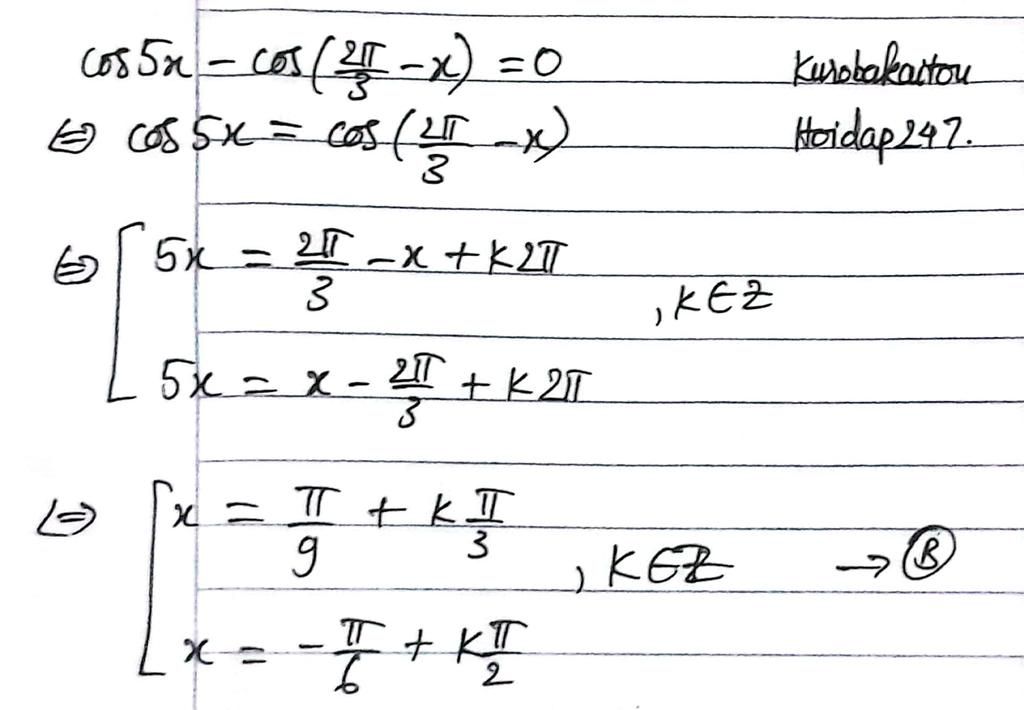 cos5x - cos(2π/3 - x) = 0 Kurobakaitou
⇔ cos5x = cos(2π/3 - x) Hoidap247.
⇔ [ 5x = 2π/3 - x + k2π
, k∈Z
5x = x - 2π/3 + k2π
⇔ [ x = π/9 + kπ/3
, k∈Z → Ⓑ
x = -π/6 + kπ/2